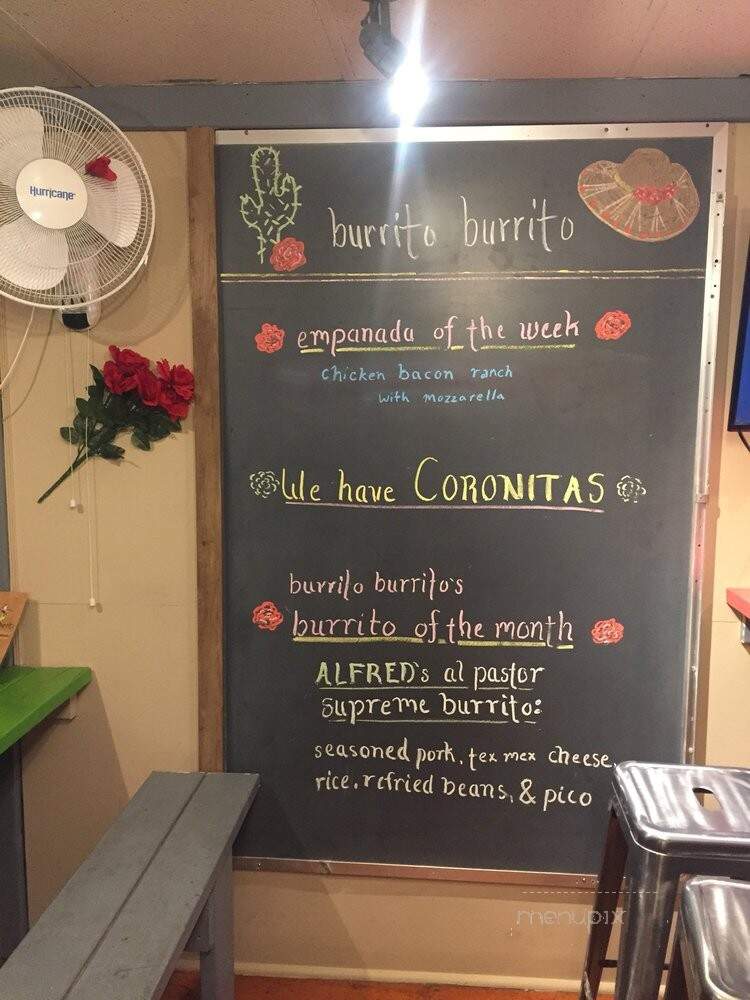 Hurricane
burrito burrito
empanada of the week
chicken bacon ranch
with mozzarella
We have CORONITAS
burrito burrito's
burrito of the month
ALFRED's al pastor
supreme burrito:
seasoned pork, tex mex cheese,
rice, refried beans, & pico
menupix